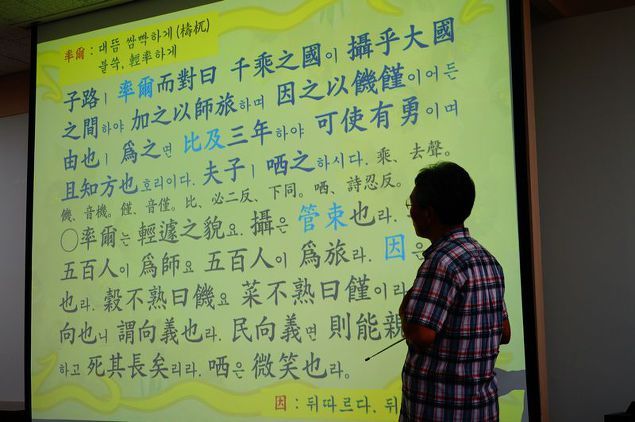 率爾 : 대뜸 쌈빡하게 (檮杌)
불쑥, 輕率하게
子路ㅣ 率爾而對曰 千乘之國이 攝乎大國
之間하야 加之以師旅하며 因之以饑饉이어든
由也ㅣ 爲之면 比及三年하야 可使有勇이며
且知方也호리이다. 夫子ㅣ 哂之하시다. 乘、去聲。
饑、音機。饉、音僅。比、必二反、下同。哂、詩忍反。
○率爾는 輕遽之貌요. 攝은 管束也라.
五百人이 爲師요 五百人이 爲旅라. 因은
也라. 穀不熟曰饑요 菜不熟曰饉이라
向也니 謂向義也라. 民向義면 則能親
하고 死其長矣리라. 哂은 微笑也라。
因 : 뒤따르다. 뒤